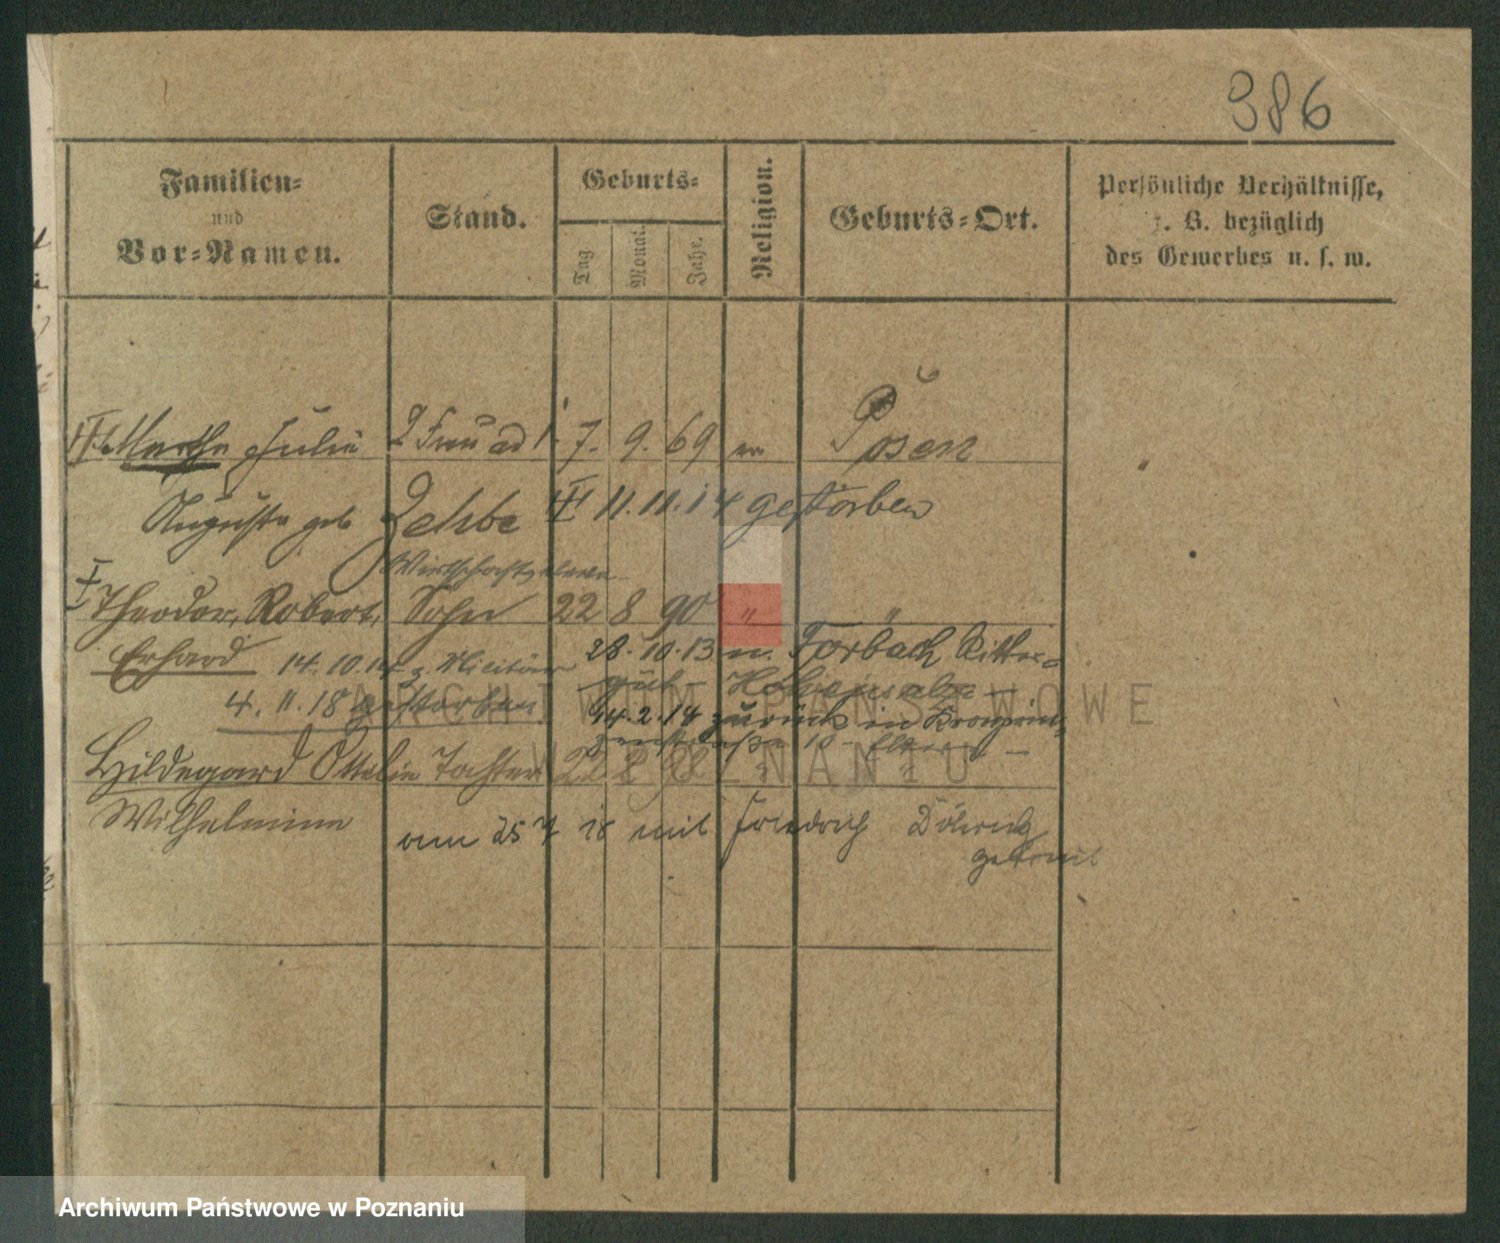 386
Familien=
und
Vor=Namen.
Stand.
Geburts=
Tag
Monat.
Jahr.
Religion.
Geburts=Ort.
Persönliche Verhältnisse,
z. B. bezüglich
des Gewerbes u. s. w.
Martha Julie 2 Frau ad 1. 7. 9. 69 ev Posen
Auguste geb Zehbe 11. 11. 14 gestorben
Theodor, Robert, Sohn 22 8 90 " "
Erhard 14. 10. 14 z. Militär
28. 10. 13 n. Forbach Ritter=
gut
4. 11. 18 gestorben
14. 2. 14 zurück in Kronprin=
Hildegard Ottilie Tochter 22
Wilhelmine
am 25 7 18 mit Friedrich
getraut
ARCHIWUM PAŃSTWOWE
W POZNANIU
Archiwum Państwowe w Poznaniu